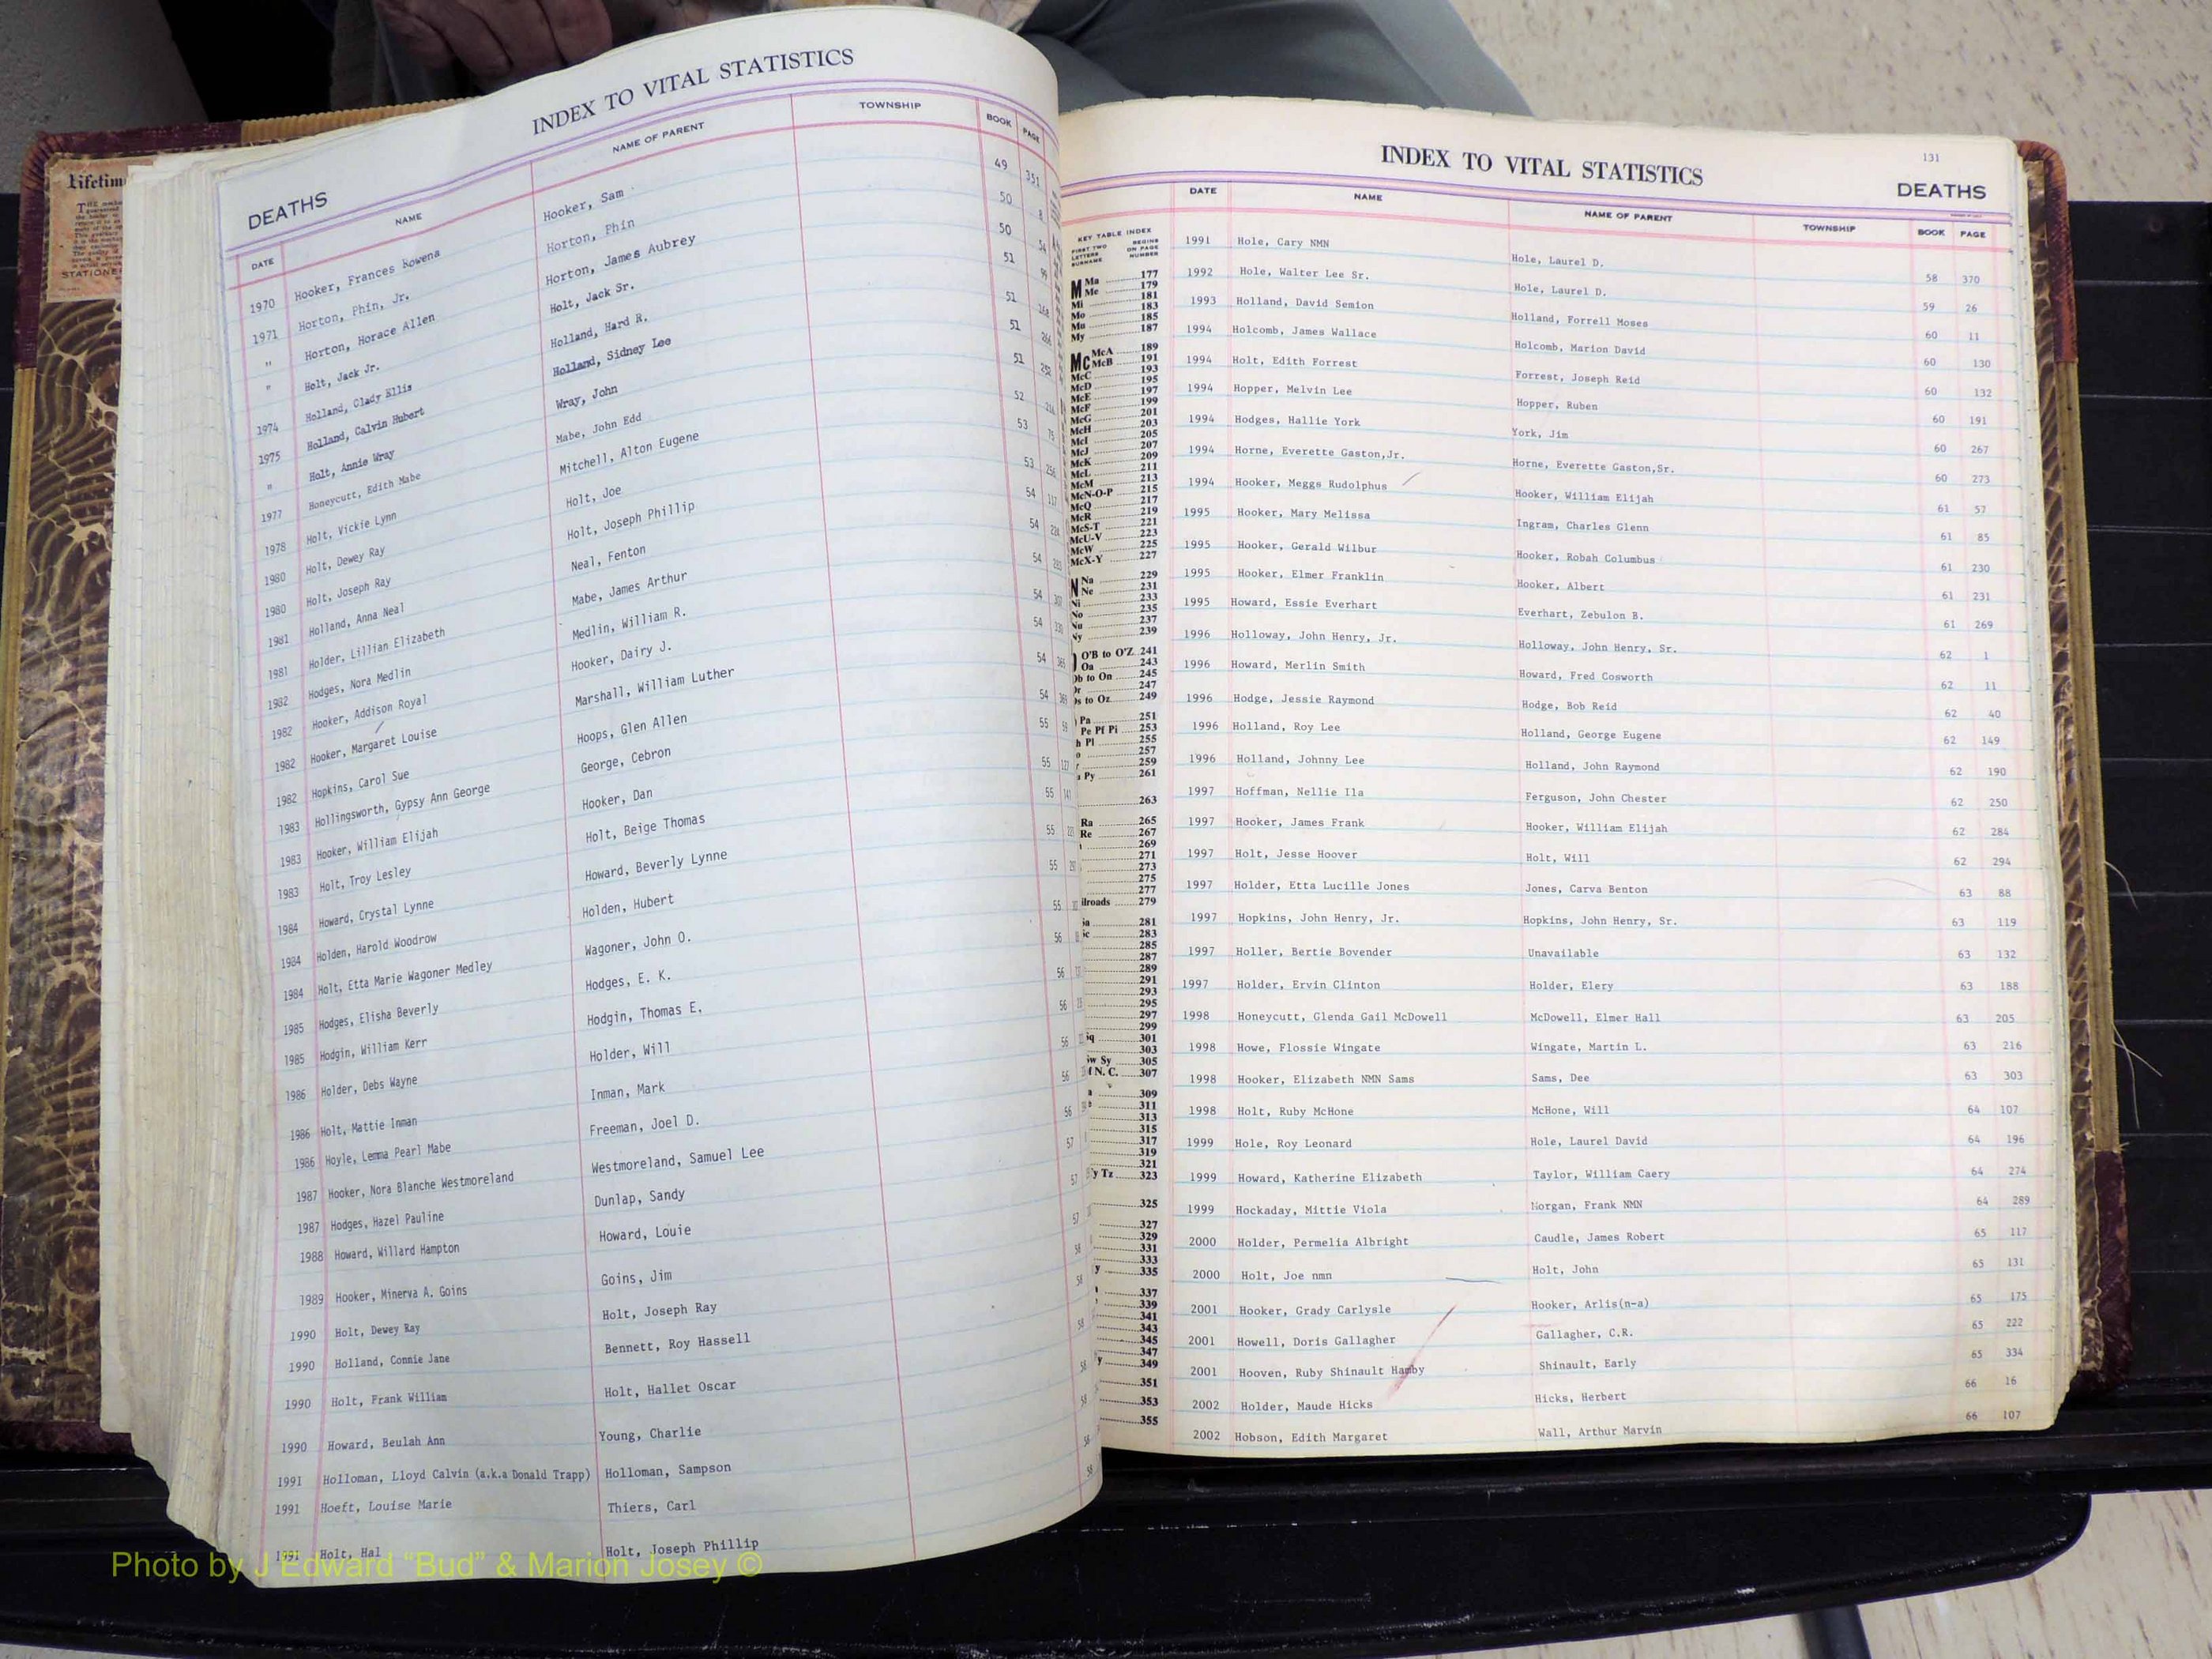 INDEX TO VITAL STATISTICS
DEATHS
DATE NAME NAME OF PARENT TOWNSHIP BOOK PAGE
1970 Hooker, Frances Rowena Hooker, Sam 49 351
1971 Horton, Phin, Jr. Horton, Phin 50 8
" Horton, Horace Allen Horton, James Aubrey 50 54
" Holt, Jack Jr. Holt, Jack Sr. 51 99
1974 Holland, Clady Ellis Holland, Hard R. 51
1975 Holland, Calvin Hubert Holland, Sidney Lee 51
" Holt, Annie Wray Wray, John 51
1977 Honeycutt, Edith Mabe Mabe, John Edd 52
1978 Holt, Vickie Lynn Mitchell, Alton Eugene 53 75
1980 Holt, Dewey Ray Holt, Joe 53
1980 Holt, Joseph Ray Holt, Joseph Phillip 54 117
1981 Holland, Anna Neal Neal, Fenton 54
1981 Holder, Lillian Elizabeth Mabe, James Arthur 54
1982 Hodges, Nora Medlin Medlin, William R. 54
1982 Hooker, Addison Royal Hooker, Dairy J. 54
1982 Hooker, Margaret Louise Marshall, William Luther 54
1982 Hopkins, Carol Sue Hoops, Glen Allen 54
1983 Hollingsworth, Gypsy Ann George George, Cebron 55
1983 Hooker, William Elijah Hooker, Dan 55
1983 Holt, Troy Lesley Holt, Beige Thomas 55
1984 Howard, Crystal Lynne Howard, Beverly Lynne 55
1984 Holden, Harold Woodrow Holden, Hubert 55
1984 Holt, Etta Marie Wagoner Medley Wagoner, John O. 55
1985 Hodges, Elisha Beverly Hodges, E. K. 56
1985 Hodgin, William Kerr Hodgin, Thomas E. 56
1986 Holder, Debs Wayne Holder, Will 56
1986 Holt, Mattie Inman Inman, Mark 56
1986 Hoyle, Lemma Pearl Mabe Freeman, Joel D. 56
1987 Hooker, Nora Blanche Westmoreland Westmoreland, Samuel Lee 56
1987 Hodges, Hazel Pauline Dunlap, Sandy 57
1988 Howard, Willard Hampton Howard, Louie 57
1989 Hooker, Minerva A. Goins Goins, Jim 57
1990 Holt, Dewey Ray Holt, Joseph Ray 58
1990 Holland, Connie Jane Bennett, Roy Hassell 58
1990 Holt, Frank William Holt, Hallet Oscar 58
1990 Howard, Beulah Ann Young, Charlie 58
1991 Holloman, Lloyd Calvin (a.k.a Donald Trapp) Holloman, Sampson 58
1991 Hoeft, Louise Marie Thiers, Carl 58
1991 Holt, Hal Holt, Joseph Phillip 58
Lifetim
STATIONE
KEY TABLE INDEX
FIRST TWO LETTERS SURNAME BEGINS ON PAGE NUMBER
M Ma 177
Me 179
Mi 181
Mo 183
Mu 185
My 187
Mc McA 189
McB 191
McC 193
McD 195
McE 197
McF 199
McG 201
McH 203
McI 205
McJ 207
McK 209
McL 211
McM 213
McN-O-P 215
McQ 217
McR 219
McS-T 221
McU-V 223
McW 225
McX-Y 227
N Na 229
Ne 231
Ni 233
No 235
Nu 237
Ny 239
O'B to O'Z 241
Oa 243
Ob to On 245
Or 247
Os to Oz 249
Pa 251
Pe Pf Pi 253
h Pl 255
257
259
a Py 261
263
Ra 265
Re 267
269
271
273
275
277
ilroads 279
281
283
285
287
289
291
293
295
297
299
301
303
w Sy 305
f N. C. 307
309
311
313
315
317
319
321
y Tz 323
325
327
329
331
333
y 335
337
339
341
343
345
347
y 349
351
353
355
INDEX TO VITAL STATISTICS
131
DEATHS
DATE NAME NAME OF PARENT TOWNSHIP BOOK PAGE
1991 Hole, Cary NMN Hole, Laurel D. 58 370
1992 Hole, Walter Lee Sr. Hole, Laurel D. 59 26
1993 Holland, David Semion Holland, Forrell Moses 60 11
1994 Holcomb, James Wallace Holcomb, Marion David 60 130
1994 Holt, Edith Forrest Forrest, Joseph Reid 60 132
1994 Hopper, Melvin Lee Hopper, Ruben 60 191
1994 Hodges, Hallie York York, Jim 60 267
1994 Horne, Everette Gaston,Jr. Horne, Everette Gaston,Sr. 60 273
1994 Hooker, Meggs Rudolphus Hooker, William Elijah 61 57
1995 Hooker, Mary Melissa Ingram, Charles Glenn 61 85
1995 Hooker, Gerald Wilbur Hooker, Robah Columbus 61 230
1995 Hooker, Elmer Franklin Hooker, Albert 61 231
1995 Howard, Essie Everhart Everhart, Zebulon B. 61 269
1996 Holloway, John Henry, Jr. Holloway, John Henry, Sr. 62 1
1996 Howard, Merlin Smith Howard, Fred Cosworth 62 11
1996 Hodge, Jessie Raymond Hodge, Bob Reid 62 40
1996 Holland, Roy Lee Holland, George Eugene 62 149
1996 Holland, Johnny Lee Holland, John Raymond 62 190
1997 Hoffman, Nellie Ila Ferguson, John Chester 62 250
1997 Hooker, James Frank Hooker, William Elijah 62 284
1997 Holt, Jesse Hoover Holt, Will 62 294
1997 Holder, Etta Lucille Jones Jones, Carva Benton 63 88
1997 Hopkins, John Henry, Jr. Hopkins, John Henry, Sr. 63 119
1997 Holler, Bertie Bovender Unavailable 63 132
1997 Holder, Ervin Clinton Holder, Elery 63 188
1998 Honeycutt, Glenda Gail McDowell McDowell, Elmer Hall 63 205
1998 Howe, Flossie Wingate Wingate, Martin L. 63 216
1998 Hooker, Elizabeth NMN Sams Sams, Dee 63 303
1998 Holt, Ruby McHone McHone, Will 64 107
1999 Hole, Roy Leonard Hole, Laurel David 64 196
1999 Howard, Katherine Elizabeth Taylor, William Caery 64 274
1999 Hockaday, Mittie Viola Morgan, Frank NMN 64 289
2000 Holder, Permelia Albright Caudle, James Robert 65 117
2000 Holt, Joe nmn Holt, John 65 131
2001 Hooker, Grady Carlysle Hooker, Arlis(n-a) 65 175
2001 Howell, Doris Gallagher Gallagher, C.R. 65 222
2001 Hooven, Ruby Shinault Hamby Shinault, Early 65 334
2002 Holder, Maude Hicks Hicks, Herbert 66 16
2002 Hobson, Edith Margaret Wall, Arthur Marvin 66 107
Photo by J Edward "Bud" & Marion Josey ©